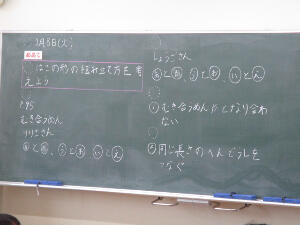 2月8日(火)
はこの形の組み立て方を考
えよう
P.95
むき合うめん
りりこさん
あとお、うとか、いとえ
しょうごさん
あとお、うとか、いとえ
① むき合うめんがとなり合わ
ない
② 同じ長さのへんどうしを
つなぐ